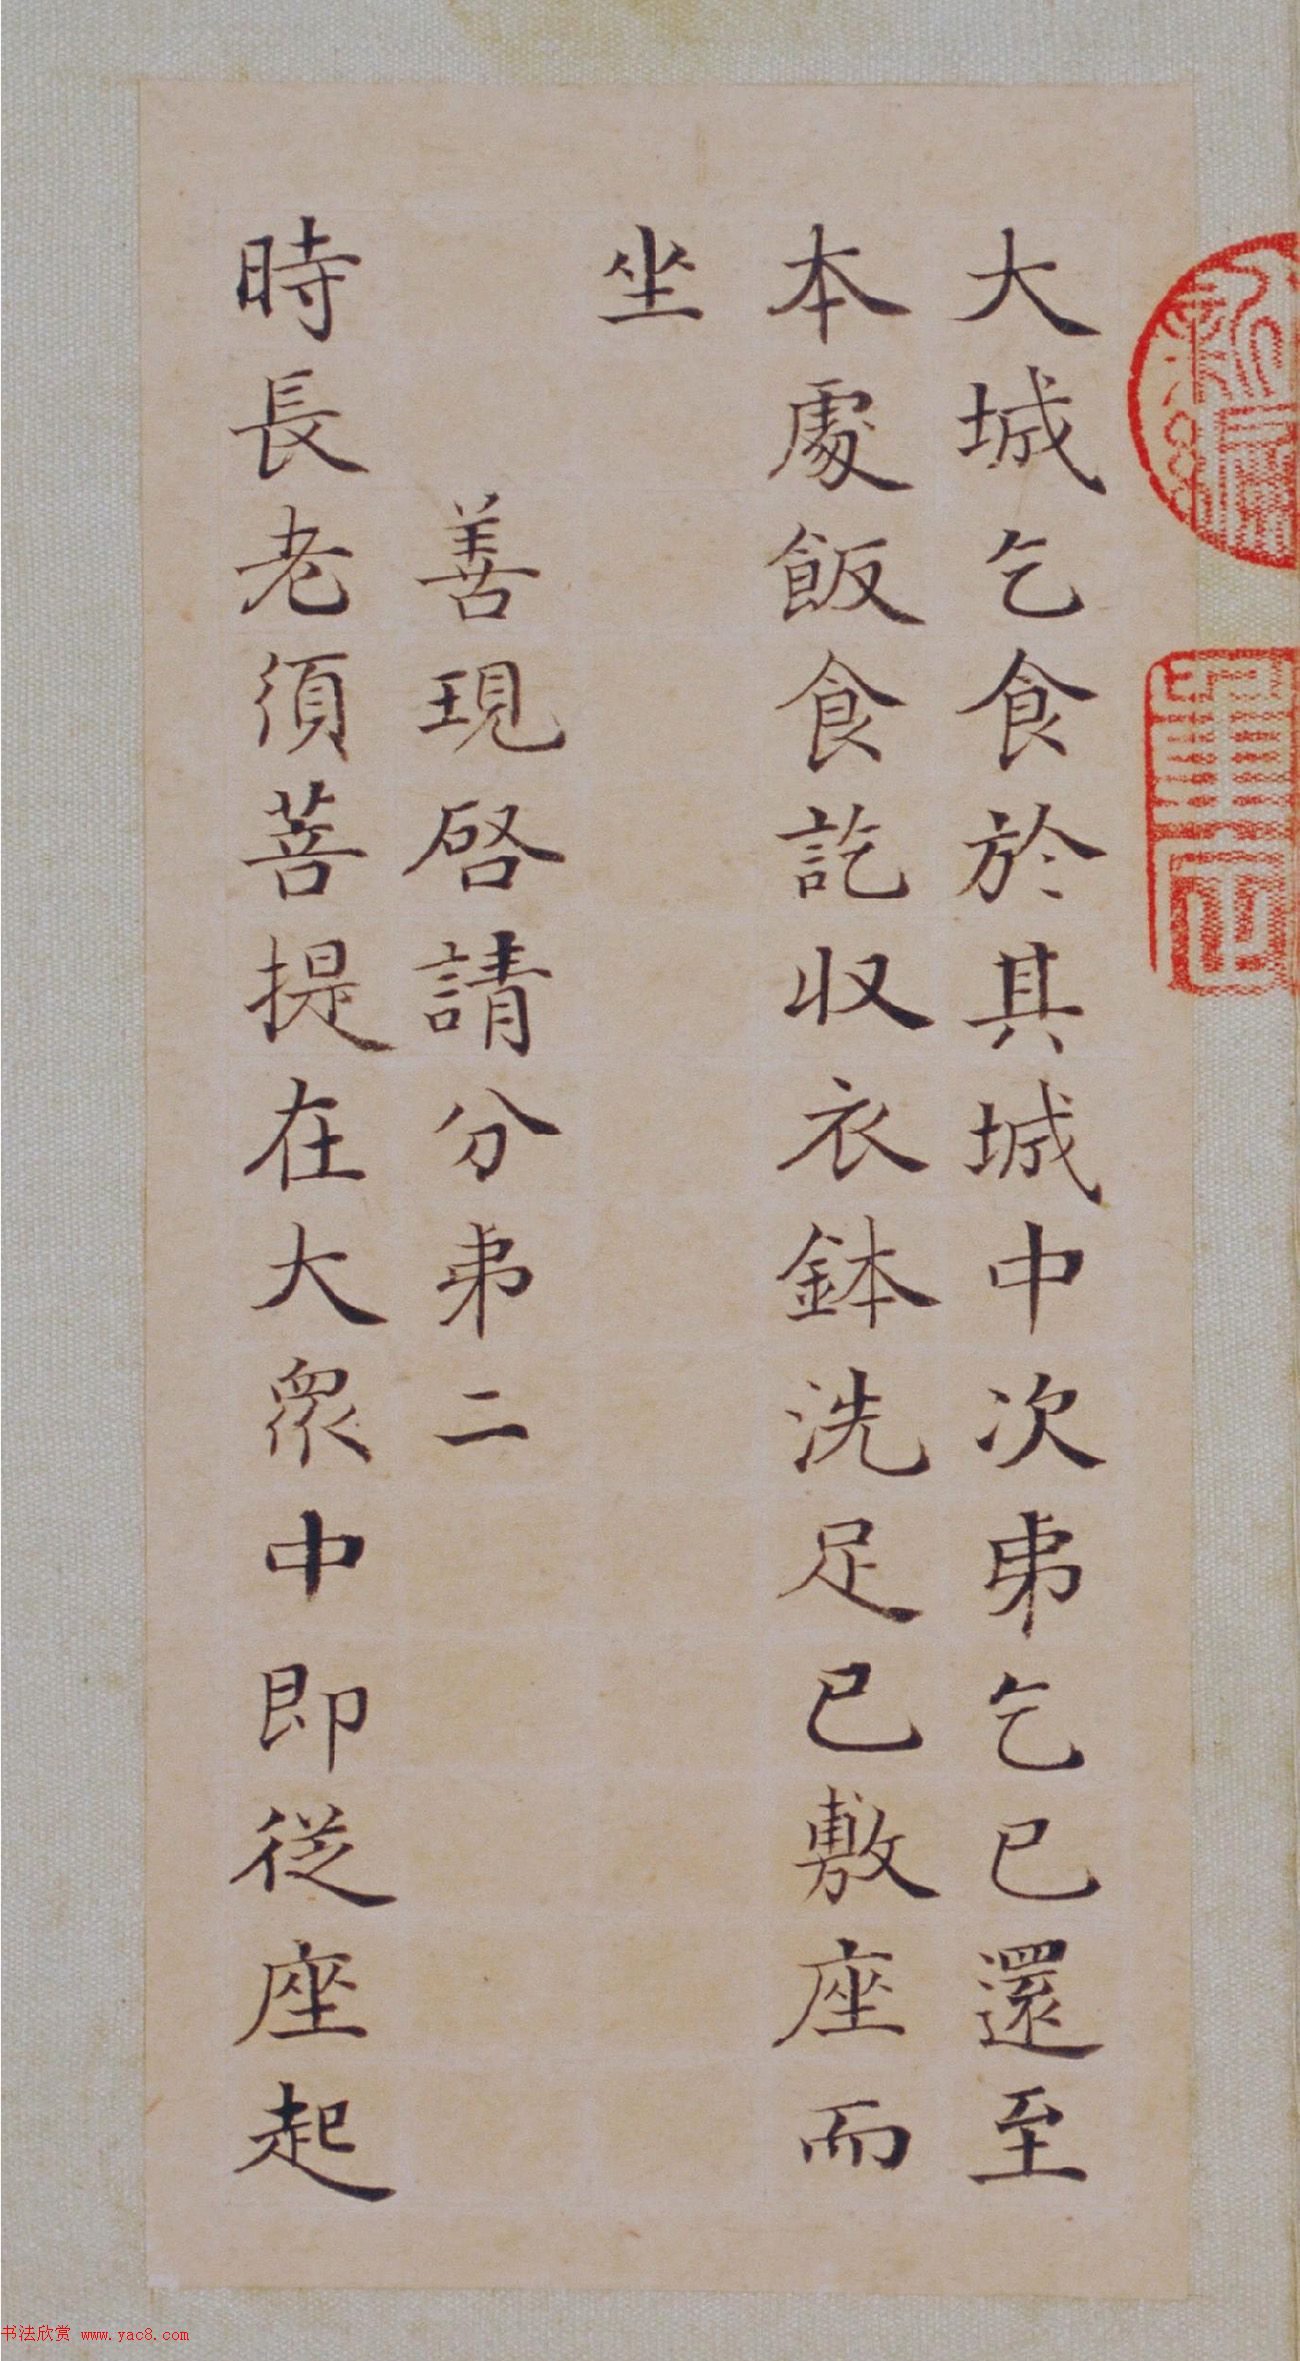 大城乞食於其城中次弟乞已還至
本處飯食訖収衣鉢洗足已敷座而
坐
善現啓請分弟二
時長老須菩提在大眾中即從座起
书法欣赏 www.yac8.com